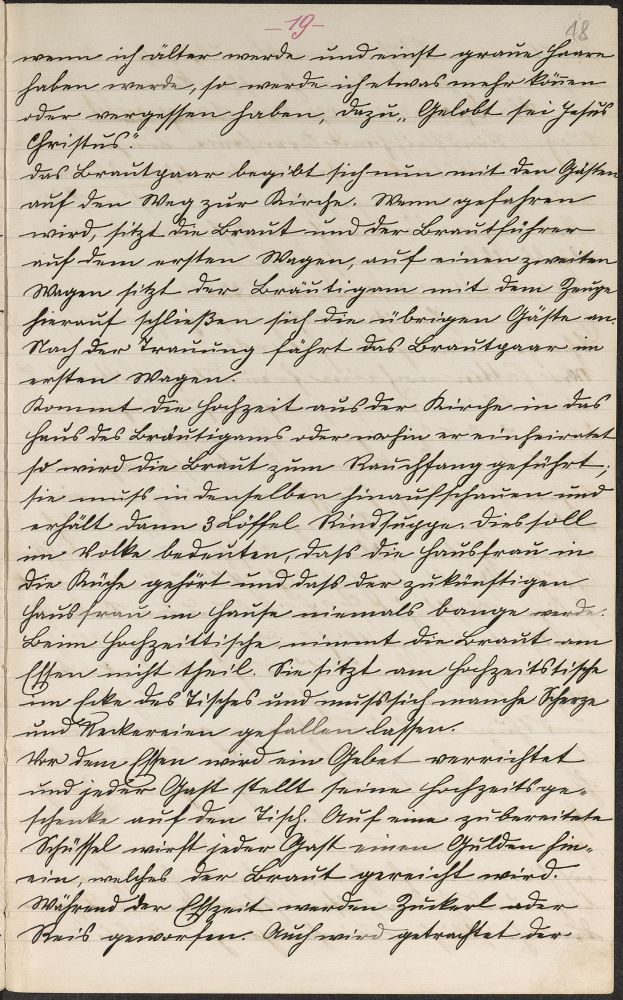 - 19 -
18
wenn ich älter werde und einst graue Haare
haben werde, so werde ich etwas mehr können
oder vergessen haben, dazu „Gelobt sei Jesus
Christus."
Das Brautpaar begibt sich nun mit den Gästen
auf den Weg zur Kirche. Wenn gefahren
wird, sitzt die Braut und der Brautführer
auf dem ersten Wagen, auf einen zweiten
Wagen sitzt der Bräutigam mit dem Zeuge
hierauf schließen sich die übrigen Gäste an.
Nach der Trauung fährt das Brautpaar im
ersten Wagen.
Kommt die Hochzeit aus der Kirche in das
Haus des Bräutigams oder wohin er einheiratet
so wird die Braut zum Rauchfang geführt;
sie muss in denselben hinaufschauen und
erhält dann 3 Löffel Rindsuppe. Dies soll
im Volke bedeuten, dass die Hausfrau in
die Küche gehört und dass der zukünftigen
Hausfrau im Hause niemals bange werde.
Beim Hochzeittische nimmt die Braut am
Essen nicht theil. Sie sitzt am Hochzeitstische
im Ecke des Tisches und muss sich manche Scherze
und Neckereien gefallen lassen.
Vor dem Essen wird ein Gebet verrichtet
und jeder Gast stellt seine Hochzeitsge=
schenke auf den Tisch. Auf eine zubereitete
Schüssel wirft jeder Gast einen Gulden hin=
ein, welches der Braut gereicht wird.
Während der Esszeit werden Zuckerl oder
Reis geworfen. Auch wird getrachtet der